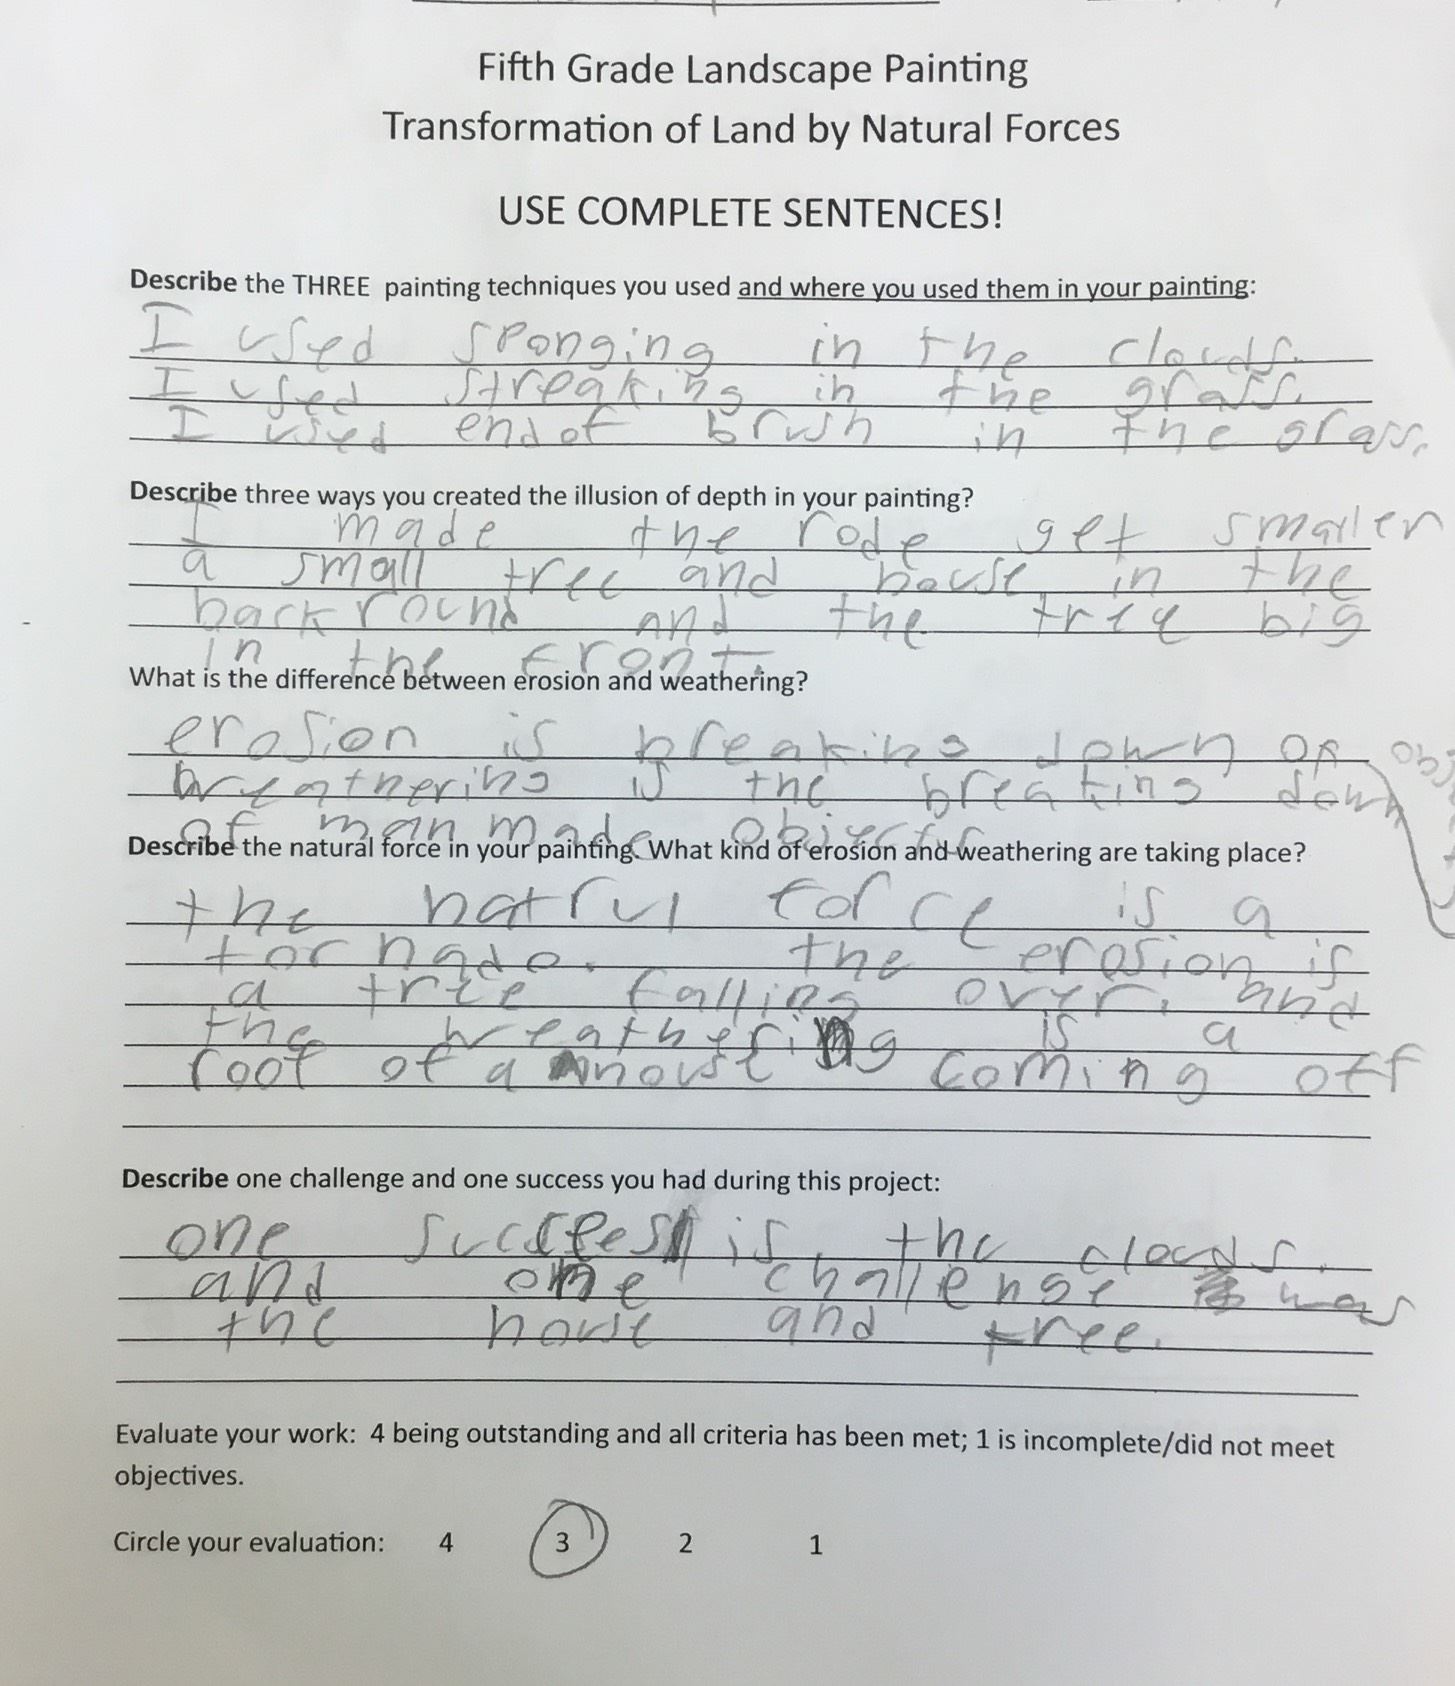 Fifth Grade Landscape Painting
Transformation of Land by Natural Forces
USE COMPLETE SENTENCES!
Describe the THREE painting techniques you used and where you used them in your painting:
I used sponging in the clouds.
I used streaking in the grass.
I used end of brush in the grass.
Describe three ways you created the illusion of depth in your painting?
I made the rode get smaller
a small tree and house in the
backround and the tree big
in the front.
What is the difference between erosion and weathering?
erosion is breaking down of
weathering is the breaking down
of man made objects
Describe the natural force in your painting. What kind of erosion and weathering are taking place?
the natrul force is a
tornado. the erosion is
a tree falling over, and
the weathering is a
roof of a house coming off
Describe one challenge and one success you had during this project:
one success is, the clouds.
and one challenge was
the house and tree.
Evaluate your work: 4 being outstanding and all criteria has been met; 1 is incomplete/did not meet
objectives.
Circle your evaluation: 4 3 2 1